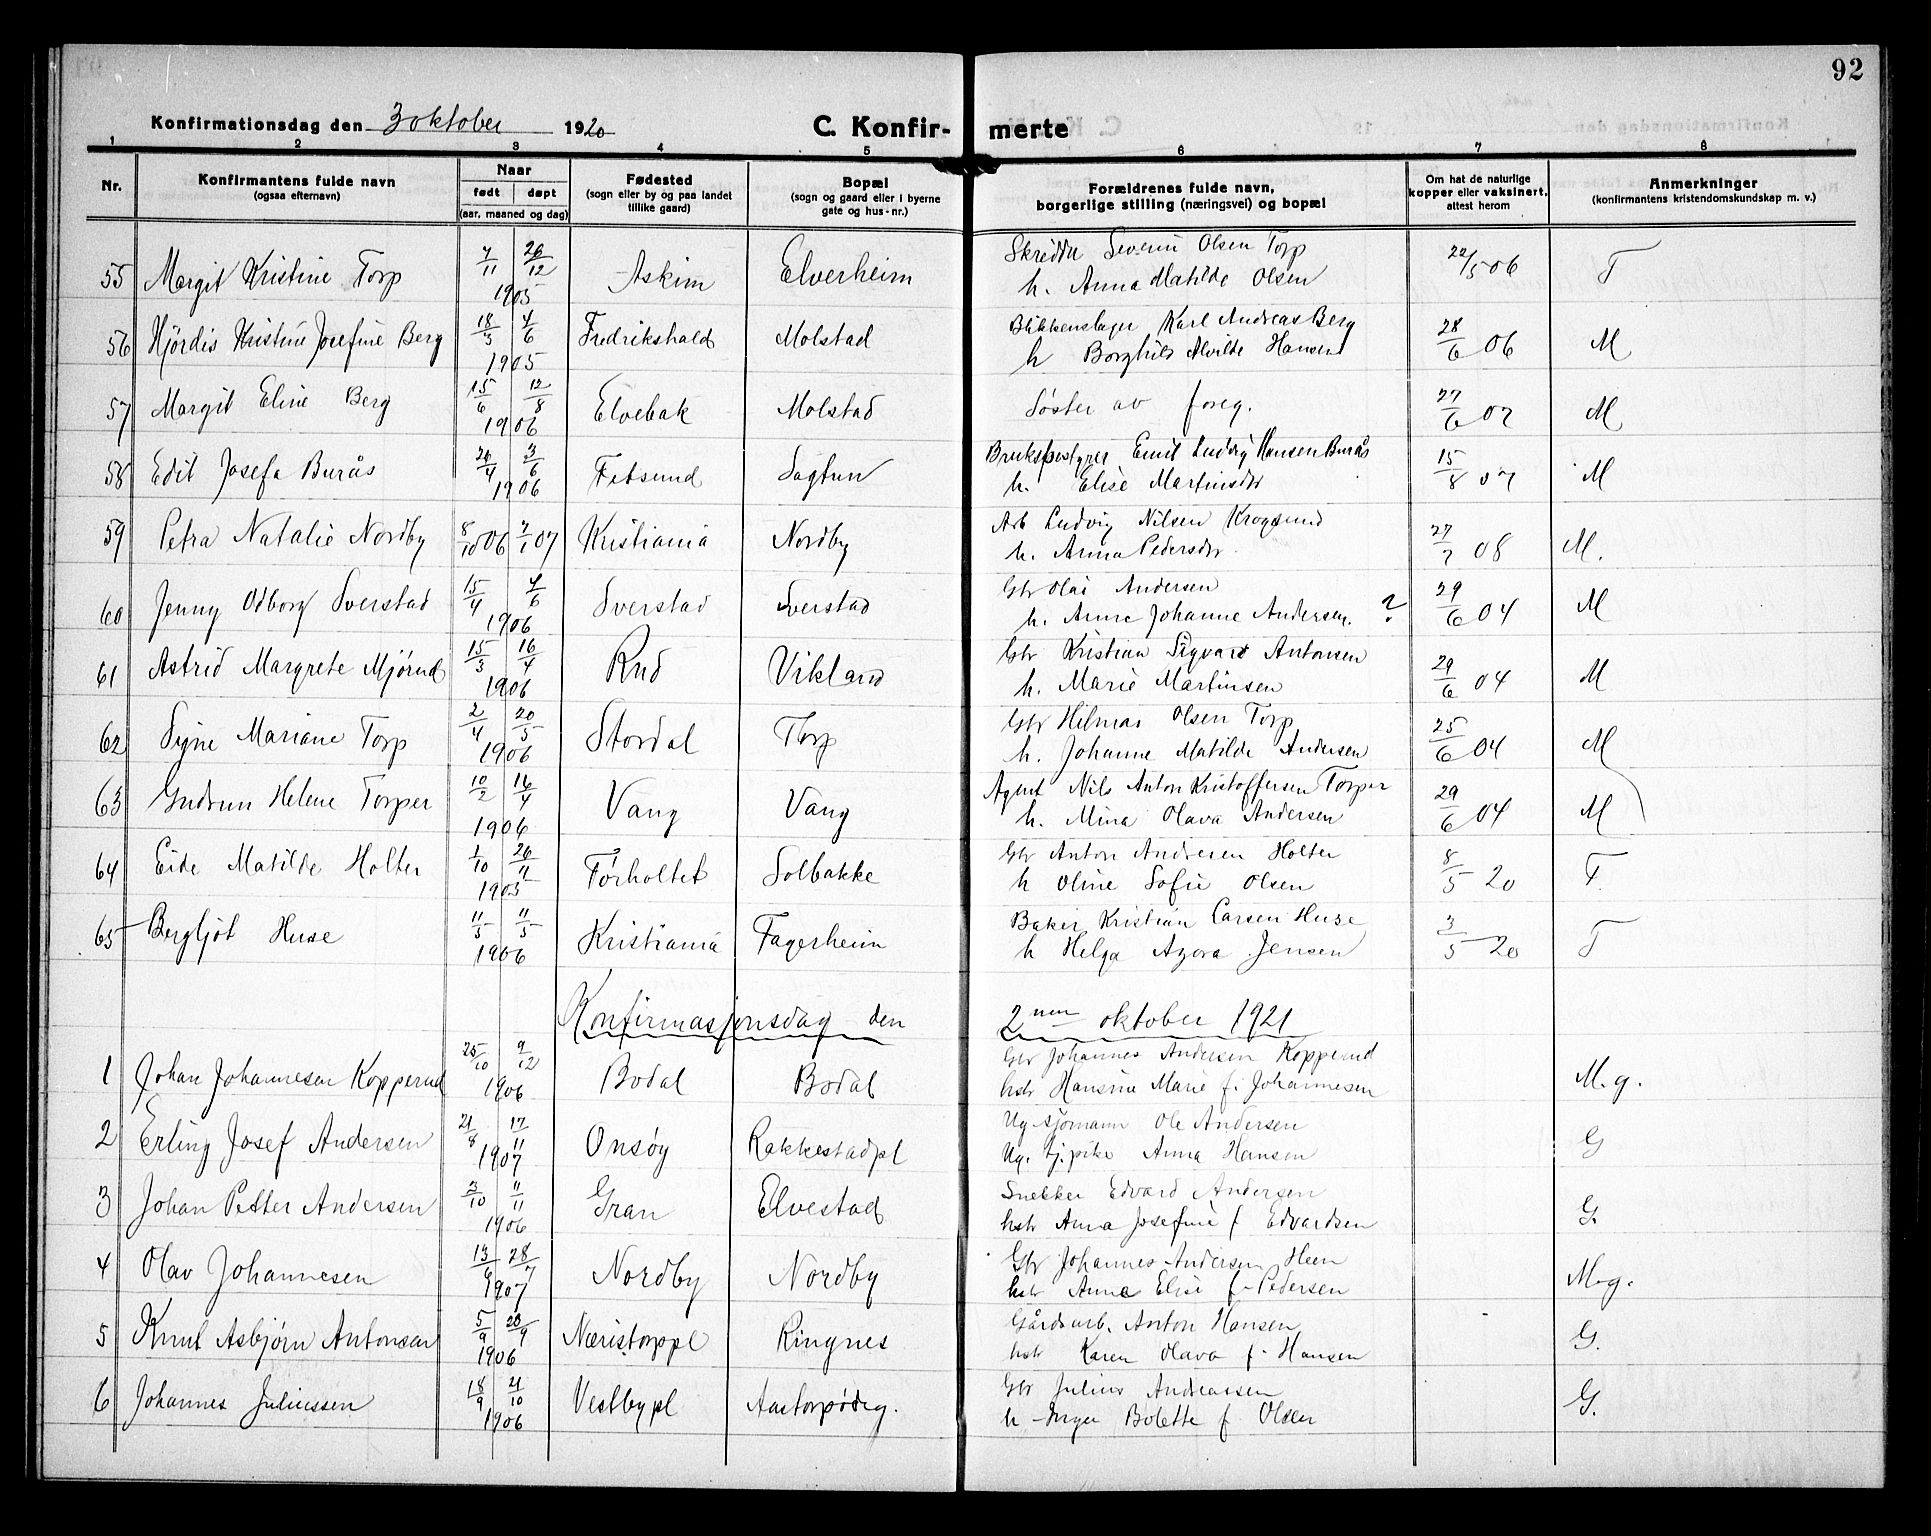 92
Konfirmationsdag den 3 oktober 1920
C. Konfirmerte
1 2 3 4 5 6 7 8
Nr.
Konfirmantens fulde navn
(ogsaa efternavn)
Naar
født døpt
(aar, maaned og dag)
Fødested
(sogn eller by og paa landet
tillike gaard)
Bopæl
(sogn og gaard eller i byerne
gate og hus-nr.)
Forældrenes fulde navn,
borgerlige stilling (næringsvei) og bopæl
Om hat de naturlige
kopper eller vaksinert,
attest herom
Anmerkninger
(konfirmantens kristendomskundskap m. v.)
55 Margit Kristine Torp 7/11 26/12 1905 Askim Elverheim
Skredder Severin Olsen Torp
h. Anna Matilde Olsen 22/5 06 T
56 Hjördis Kristine Josefine Berg 18/3 4/6 1905 Fredrikshald Molstad
Blikkenslager Karl Andreas Berg
h Borghild Alvilde Hansen 28/6 06 M
57 Margit Eline Berg 15/6 12/8 1906 Elvebak Molstad
Søster av foreg. 27/6 07 M
58 Edit Josefa Burås 26/4 3/6 1906 Fetsund Sagtun
Bruksbestyrer Emil Ludvig Hansen Burås
h. Elise Martinsdr 15/8 07 M
59 Petra Natalie Nordby 8/10 06 2/1 07 Kristiania Nordby
Arb Ludvig Nilsen Krogsund
h. Anna Pedersdr. 27/7 08 M.
60 Jenny Odborg Sverstad 15/4 4/6 1906 Sverstad Sverstad
Gbr Olai Andersen
h. Anne Johanne Andersen. ? 29/6 04 M
61 Astrid Margrete Mjørud 15/3 16/4 1906 Rud Vikland
Gbr Kristian Sigvard Antonsen
h. Marie Martinsen 29/6 04 M
62 Signe Mariane Torp 2/4 20/5 1906 Stordal Torp
Gbr Hilmar Olsen Torp
h. Johanne Matilde Andersen 25/6 04 M
63 Gudrun Helene Torper 10/2 16/4 1906 Vang Vang
Agent Nils Anton Kristoffersen Torper
h. Mina Olava Andersen 29/6 04 M
64 Eide Matilde Holter 1/10 26/11 1905 Førholtet Solbakke
Gbr Anton Andresen Holter
h Oline Sofie Olsen 8/5 20 T.
65 Bergljot Huse 11/5 11/5 1906 Kristiania Fagerheim
Baker Kristian Larsen Huse
h Helga Azora Jensen 3/5 20 T
Konfirmasjonsdag den 2nen oktober 1921
1 Johan Johannesen Kopperud 25/10 9/12 1906 Bodal Bodal
Gbr Johannes Andersen Kopperud
hstr Hansine Marie f. Johannesen M.g.
2 Erling Josef Andersen 21/8 17/11 1907 Onsøy Rakkestadpl
Ug. sjømann Ole Andersen
Ug. tj.pike Anna Hansen G
3 Johan Petter Andersen 3/10 11/11 1906 Gran Elvestad
Snekker Edvard Andersen
hstr Anna Josefine f Edvardsen G.
4 Olav Johannesen 13/6 28/7 1907 Nordby Nordby
Gbr Johannes Andersen Heen
hstr Anne Elise f. Pedersen M.g.
5 Knut Asbjørn Antonsen 5/9 20/9 1906 Næristorppl Ringnes
Gårdsarb. Anton Hansen
hstr Karen Olava f. Hansen G.
6 Johannes Juliussen 18/9 21/10 1906 Vestbypl
Gbr Julius Andreassen
h Inger Bolette f. Olsen G.